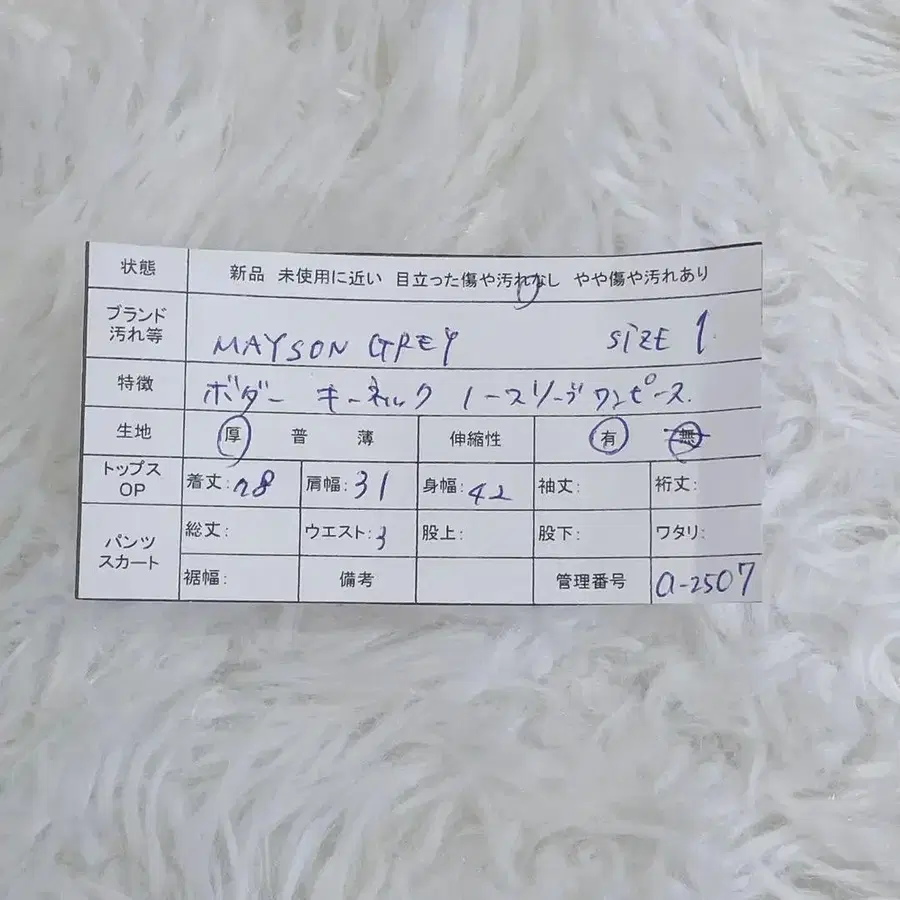 状態 新品 未使用に近い 目立った傷や汚れなし やや傷や汚れあり
ブランド
汚れ等
MAYSON GREY SIZE 1
特徴 ボダー キーネック ノースリーブワンピース.
生地 厚 普 薄 伸縮性 有 無
トップス
OP
着丈: 肩幅: 31 身幅: 42 袖丈: 裄丈:
パンツ
スカート
総丈: ウエスト: 3 股上: 股下: ワタリ:
裾幅: 備考 管理番号 a-2507